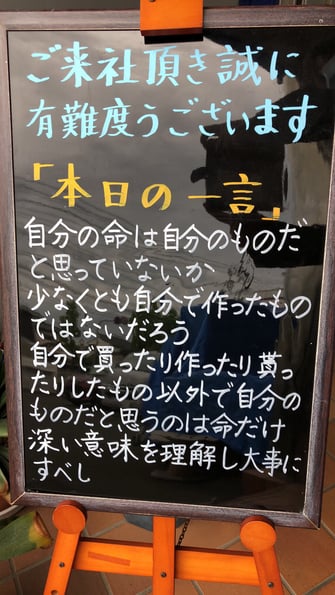 ご来社頂き誠に
有難度うございます
「本日の一言」
自分の命は自分のものだ
と思っていないか
少なくとも自分で作ったもの
ではないだろう
自分で買ったり作ったり貰っ
たりしたもの以外で自分の
ものだと思うのは命だけ
深い意味を理解し大事に
すべし